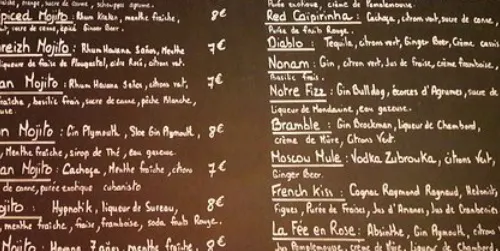 fraîche, orange, sucre de canne, schweppes agrume.
Spiced Mojito : Rhum Kraken, menthe fraîche, 8€
vert, sucre de canne, épicé Ginger Beer.
Breizh Mojito : Rhum Havana 3años, Menthe 7€
liqueur de fraise de Plougastel, cidre rosé, citron vert.
an Mojito : Rhum Havana 3años, citron vert, 7€
fraîche, basilic frais, sucre de canne, pêche blanche,
euse.
n Mojito : Gin Plymouth, Sloe Gin Plymouth, 8€
, Menthe fraîche, sirop de Thé, eau gazeuse.
an Mojito : Cachaça, Menthe fraîche, citron 7€
de canne, purée exotique cubanisto
ojito : Hypnotik, liqueur de Sureau, 8€
, menthe fraîche, fraise, framboise, soda fruits Rouge.
Mojito : Havana 7 años, menthe fraîche, 8€
Purée exotique, crème de Pamplemousse.
Red Caïpirinha : Cachaça, citron vert, sucre de
Purée de fruits Rouge.
Diablo : Tequila, citron vert, Ginger Beer, Crème cassis
Nonam : Gin, citron vert, Jus de fraise, crème framboise,
Basilic frais.
Notre Fizz : Gin Bulldog, écorces d'Agrumes, sucre de
Liqueur de Mandarine, eau gazeuse.
Bramble : Gin Brockman, Liqueur de Chambord,
crème de Mûre, Citrons Vert.
Moscow Mule : Vodka Zubrowka, citrons Vert,
Ginger Beer.
French Kiss : Cognac Raymond Ragnaud,
Figues, Purée de Fraises, Jus d'Ananas, Jus de Cranberries
La Fée en Rose : Absinthe, Gin Plymouth, Citron
Jus Pamplemousse, crème de Mûre, Liqueur de Chambord